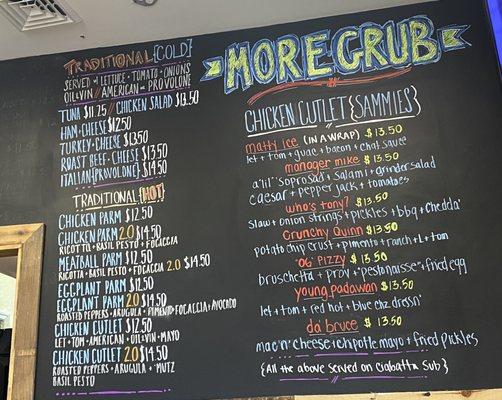 TRADITIONAL {COLD}
SERVED w/ LETTUCE • TOMATO • ONIONS
OIL+VIN // AMERICAN or PROVOLONE
TUNA $11.25 // CHICKEN SALAD $13.50
HAM • CHEESE $12.50
TURKEY • CHEESE $13.50
ROAST BEEF • CHEESE $13.50
ITALIAN {PROVOLONE} $14.50
TRADITIONAL {HOT}
CHICKEN PARM $12.50
CHICKEN PARM 2.0 $14.50
RICOTTA • BASIL PESTO • FOCACCIA
MEATBALL PARM $12.50
RICOTTA • BASIL PESTO • FOCACCIA 2.0 $14.50
EGGPLANT PARM $11.50
EGGPLANT PARM 2.0 $14.50
ROASTED PEPPERS • ARUGULA • PIMENTO FOCACCIA • AVOCADO
CHICKEN CUTLET $12.50
LET • TOM • AMERICAN • OIL+VIN • MAYO
CHICKEN CUTLET 2.0 $14.50
ROASTED PEPPERS • ARUGULA • MUTZ
BASIL PESTO
MORE GRUB
CHICKEN CUTLET {SAMMIES}
matty ice (IN A WRAP) $13.50
let + tom + guac + bacon + chal sauce
manager mike $13.50
a'lil' soprosad + salami + grinder salad
who's tony? $13.50
caesar + pepper jack + tomatoes
slaw + onion strings + pickles + bbq + chedda'
Crunchy Quinn $13.50
potato chip crust + pimento + ranch + L + tom
"OG" PIZZY $13.50
bruschetta + prov + "pestonaisse" + fried egg
young padawan $13.50
let + tom + red hot + blue chz dressn'
da' bruce $13.50
mac'n'cheese + chipotle mayo + fried pickles
{All the above served on Ciabatta Sub}